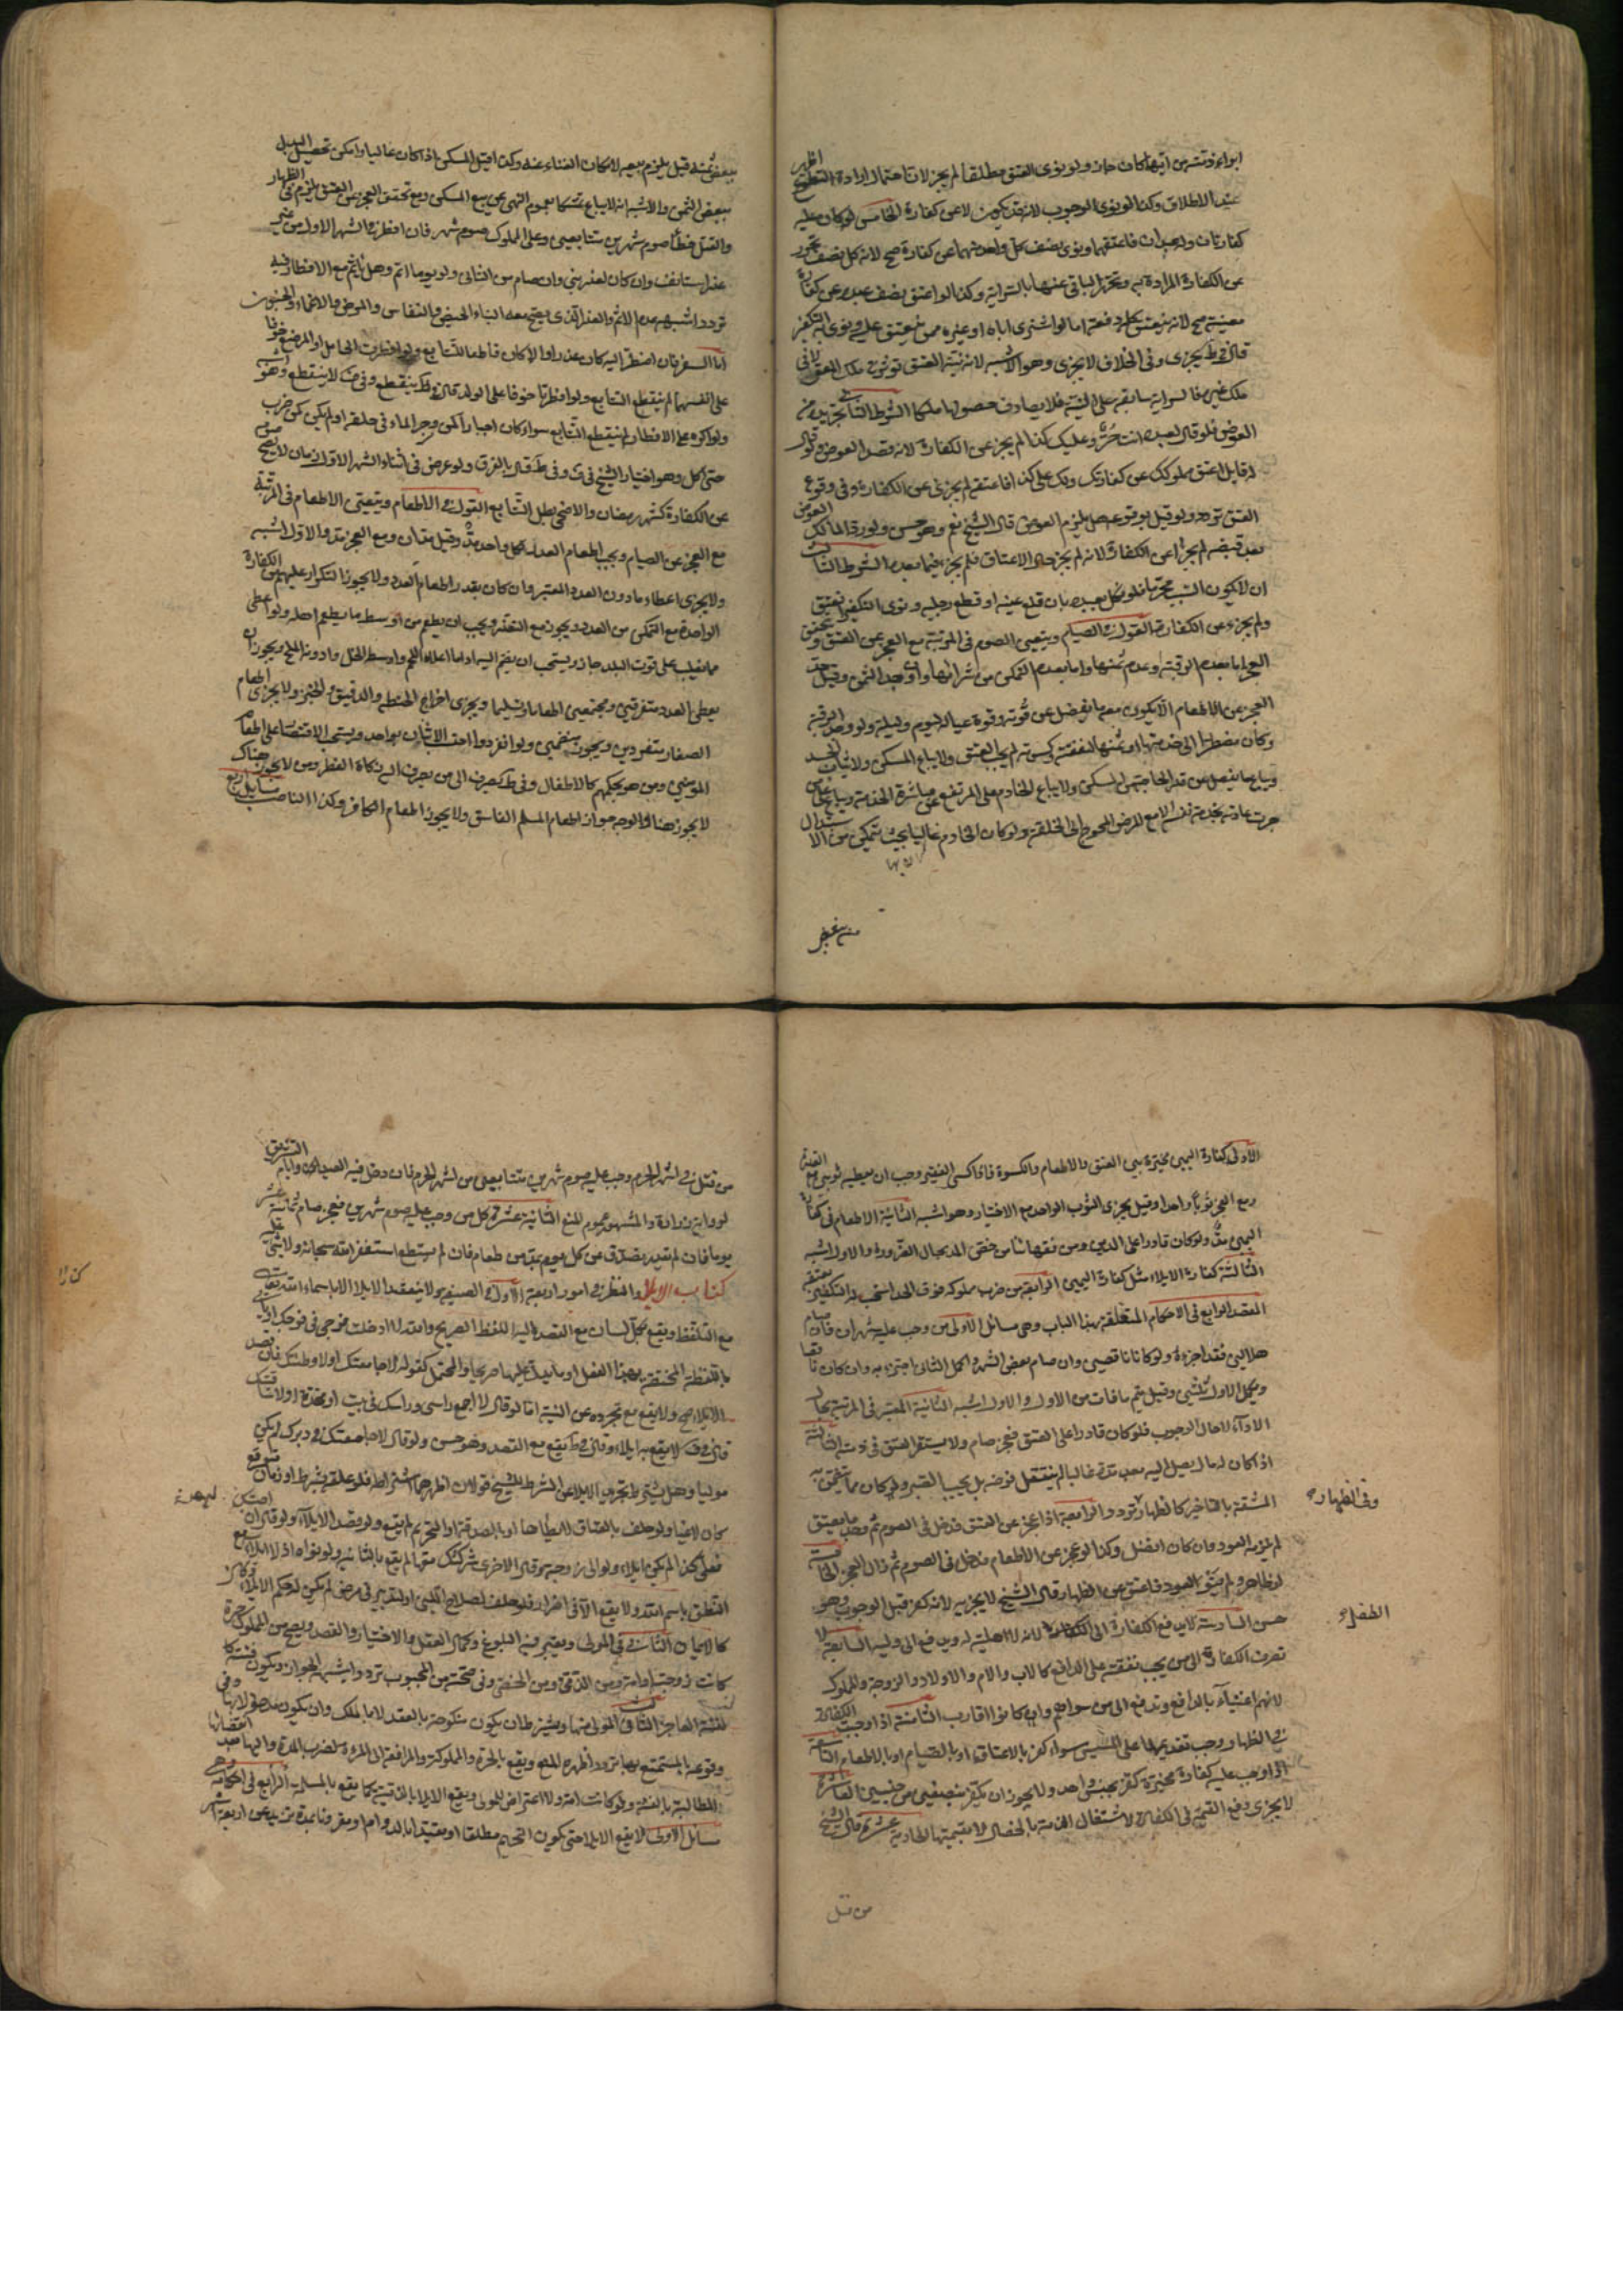 ابراء ذمته من ايهما كان جاز ولو نوى العتق مطلقا لم يجز لان احتمال ارادة التطوع اظهر
عند الاطلاق وكذا لو نوى الوجوب لانه قد يكون لا عن كفارة الخامس لو كان عليه
كفارتان وله عبدان فاعتقهما ونوى نصف كل واحد منهما عن كفارة صح لان كل نصف تحرر
عن الكفارة المرادة به وتحرر الباقي عنها بالسراية وكذا لو اعتق نصف عبده عن كفارة
معينة صح لانه ينعتق كله دفعة اما لو اشترى اباه او غيره ممن ينعتق عليه ونوى به التكفير
قال في ط يجزى وفي الخلاف لا يجزى وهو الاشبه لان نية العتق تؤثر في ملك المعتق لا في
ملك غيره فالسراية سابقة على النية فلا يصادف حصولها ملكا الشرط الثاني تجريده من
العوض فلو قال لعبده انت حر وعليك كذا لم يجز عن الكفارة لانه قصد العوض ولو قال
له قايل اعتق مملوكك عن كفارتك ولك علي كذا فاعتقه لم يجزئ عن الكفارة وفي وقوع
العتق تردد ولو قيل بوقوعه هل يلزم العوض قال الشيخ نعم وهو حسن ولو رد المالك العوض
بعد قبضه لم يجز عن الكفارة لانه لم يجز حال الاعتاق فلم يجز فيما بعد الشرط الثالث
ان لا يكون السبب محرما فلو نكل بعبده بان قلع عينه او قطع رجليه ونوى التكفير انعتق
ولم يجزء عن الكفارة القول في الصيام ويتعين الصوم في المرتبة مع العجز عن العتق ويتحقق
العجز اما بعدم الرقبة وعدم ثمنها واما بعدم التمكن من شرائها وان وجد الثمن وقيل حد
العجز عن الاطعام الا يكون معه ما يفضل عن قوته وقوة عياله ليوم وليلة ولو وجد الرقبة
وكان مضطرا الى خدمتها او ثمنها لنفقته وكسوته لم يجب العتق ولا يباع المسكن ولا ثياب الجسد
ويباع ما يفضل عن قدر الحاجة من المسكن ولا يباع الخادم على المرتفع عن مباشرة الخدمة ويباع على من
جرت عادته بخدمة نفسه الا مع المرض المحوج الى الخدمة ولو كان الخادم غاليا بحيث يتمكن من الاستبدال
منه ببعض
ببعض ثمنه قيل يلزم بيعه لامكان الغناء عنه وكذا قيل في المسكن اذا كان غاليا وامكن تحصيل البدل
ببعض الثمن والاشبه انه لا يباع تمسكا بعموم النهي عن بيع المسكن ومع تحقق العجز عن العتق يلزم في الظهار
والقتل خطأ صوم شهرين متتابعين وعلى المملوك صوم شهر فان افطر في الشهر الاول من غير
عذر استانف وان كان لعذر بنى وان صام من الثاني ولو يوما اتم وهل يأثم مع الافطار فيه
تردد اشبهه عدم الاثم والعذر الذي يصح معه البناء الحيض والنفاس والمرض والاغماء والجنون
اما السفر فان اضطر اليه كان عذرا والا كان قاطعا للتتابع ولو افطرت الحامل او المرضع خوفا
على انفسهما لم ينقطع التتابع ولو افطرتا خوفا على الولد قال في ط ينقطع وفي ف لا ينقطع وهو اشبه
ولو اكره على الافطار لم ينقطع التتابع سواء كان اجبارا كمن وجر الماء في حلقه او لم يكن كمن ضرب
حتى اكل وهو اختيار الشيخ في ف وفي ط قال بالفرق ولو عرض في اثناء الشهر الاول زمان لا يصح صومه
عن الكفارة كشهر رمضان والاضحى بطل التتابع القول في الاطعام ويتعين الاطعام في المرتبة
مع العجز عن الصيام ويجب اطعام العدد لكل واحد مد وقيل مدان ومع العجز مد والاول اشبه
ولا يجزى اعطاء ما دون العدد المعتبر وان كان بقدر اطعام العدد ولا يجوز التكرار عليهم من الكفارة
الواحدة مع التمكن من العدد ويجوز مع التعذر ويجب ان يطعم من اوسط ما يطعم اهله ولو اعطى
مما يغلب على قوت البلد جاز ويستحب ان يضم اليه اداما اعلاه اللحم واوسطه الخل وادونه الملح ويجوز ان
يعطى العدد متفرقين ومجتمعين اطعاما وتسليما ويجزى اخراج الحنطة والدقيق والخبز ولا يجزى اطعام
الصغار منفردين ويجوز منضمين ولو انفردوا احتسب الاثنان بواحد ويستحب الاقتصار على اطعام
المؤمنين ومن هو بحكمهم كالاطفال وفي ط يصرف الى من يصرف اليه زكاة الفطر ومن لا يجوز هناك
لا يجوز هنا والوجه جواز اطعام المسلم الفاسق ولا يجوز اطعام الكافر وكذا الناصب مسايل اربع
الاولى كفارة اليمين مخيرة بين العتق والاطعام والكسوة فاذا كسى الفقير وجب ان يعطيه ثوبين مع القدرة
ومع العجز ثوبا واحدا وقيل يجزى الثوب الواحد مع الاختيار وهو اشبه الثانية الاطعام في كفارة
اليمين مد ولو كان قادرا على المدين ومن فقهائنا من خص المد بحال الضرورة والاول اشبه
الثالثة كفارة الايلاء مثل كفارة اليمين الرابعة من ضرب مملوكه فوق الحد استحب له التكفير بعتقه
المقصد الرابع في الاحكام المتعلقة بهذا الباب وهي مسائل الاولى من وجب عليه شهران فان صام
هلالين فقد اجزءه ولو كانا ناقصين وان صام بعض الشهر واكمل الثاني اجتزء به وان كان ناقصا
ويكمل الاول ثلثين وقيل يتم ما فات من الاول والاول اشبه الثانية المعتبر في المرتبة بحال
الاداء لا حال الوجوب فلو كان قادرا على العتق فعجز صام ولا يستقر العتق في ذمته الثالثة
اذا كان له مال يصل اليه بعد مدة غالبا لم ينتقل فرضه بل يجب الصبر ولو كان مما يتضمن به
المشقة بالتاخير كالظهار تردد والرابعة اذا عجز عن العتق فدخل في الصوم ثم وجد ما يعتق
وفي الظهار
لم يلزمه العود وان كان افضل وكذا لو عجز عن الاطعام فدخل في الصوم ثم زال العجز الخامسة
لو ظاهر ولم ينو العود فاعتق عن الظهار قال الشيخ لا يجزيه لانه كفر قبل الوجوب وهو
حسن السادسة لا يدفع الكفارة الى الطفل لانه لا اهلية له ويدفع الى وليه السابعة لا
الطفل
تصرف الكفارة الى من يجب نفقته على الدافع كالاب والام والاولاد والزوجة والمملوك
لانهم اغنياء بالدافع وتدفع الى من سواهم وان كانوا اقارب الثامنة اذا وجبت الكفارة
في الظهار وجب تقديمها على المسيس سواء كفر بالاعتاق او بالصيام او بالاطعام التاسعة
اذا وجب عليه كفارة مخيرة كفر بجنس واحد ولا يجوز ان يكفر بنصفين من جنسين العاشرة
لا يجزى دفع القيمة في الكفارة لاشتغال الذمة بالخصال لا بقيمتها الحادية عشرة قال الشيخ
من قتل
من قتل في اشهر الحرم وجب عليه صوم شهرين متتابعين من اشهر الحرم فان دخل فيه العيدان وايام التشريق
لرواية زرارة والمشهور عموم المنع الثانية عشرة كل من وجب عليه صوم شهرين فعجز صام ثمانية عشر
يوما فان لم يقدر تصدق عن كل يوم بمد من طعام فان لم يستطع استغفر الله سبحانه ولا شيء عليه
كتاب الايلاء والنظر في امور اربعة الاول في الصيغة ولا ينعقد الايلاء الا باسماء الله تعالى
مع التلفظ ويقع بكل لسان مع القصد اليه اللفظ الصريح والله لا ادخلت فرجي في فرجك او يأتي
باللفظة المختصة بهذا الفعل او ما يدل عليها صريحا والمحتمل كقوله لا جامعتك او لا وطئتك فان قصد
الايلاء صح ولا يقع مع تجرده عن النية اما لو قال لا اجمع راسي وراسك في بيت او مخدة او لا ساقفتك
قال في ف لا يقع به ايلاء وقال في ط يقع مع القصد وهو حسن ولو قال لا جامعتك في دبرك لم يكن
موليا وهل يشترط تجريد الايلاء عن الشرط للشيخ قولان اظهرهما اشتراطه فلو علقه بشرط او زمان متوقع
كان لاغيا ولو حلف بالعتاق لا يطأها او بالصدقة او التحريم لم يقع ولو قصد الايلاء ولو قال ان اصبتك
فعلي كذا لم يكن ايلاء ولو آلى من زوجة وقال للاخرى شركتك معها لم يقع بالثانية ولو نواه اذ لا ايلاء الا مع
النطق باسم الله ولا يقع الا في اضرار فلو حلف لصلاح اللبن او لتدبير في مرض لم يكن له حكم الايلاء وكان
كالايمان الثاني في المولى ويعتبر فيه البلوغ وكمال العقل والاختيار والقصد ويصح من المملوك حرة
كانت زوجته او امة ومن الذمي ومن الخصي وفي صحته من المجبوب تردد اشبهه الجواز ويكون فئته
كفئة العاجز الثالث في المولى منها ويشترط ان يكون منكوحة بالعقد لا بالملك وان يكون مدخولا بها وفي
وقوعه بالمستمتع بها تردد اظهره المنع ويقع بالحرة والمملوكة والمرافعة الى المرءة لضرب المدة واليها بعد انقضائها
المطالبة بالفئة ولو كانت امة ولا اعتراض للمولى ويقع الايلاء بالذمية كما يقع بالمسلمة الرابع في احكامه وهي
مسائل الاولى لا يقع الايلاء حتى يكون التحريم مطلقا او مقيدا بالدوام او مقرونا بمدة تزيد عن اربعة اشهر